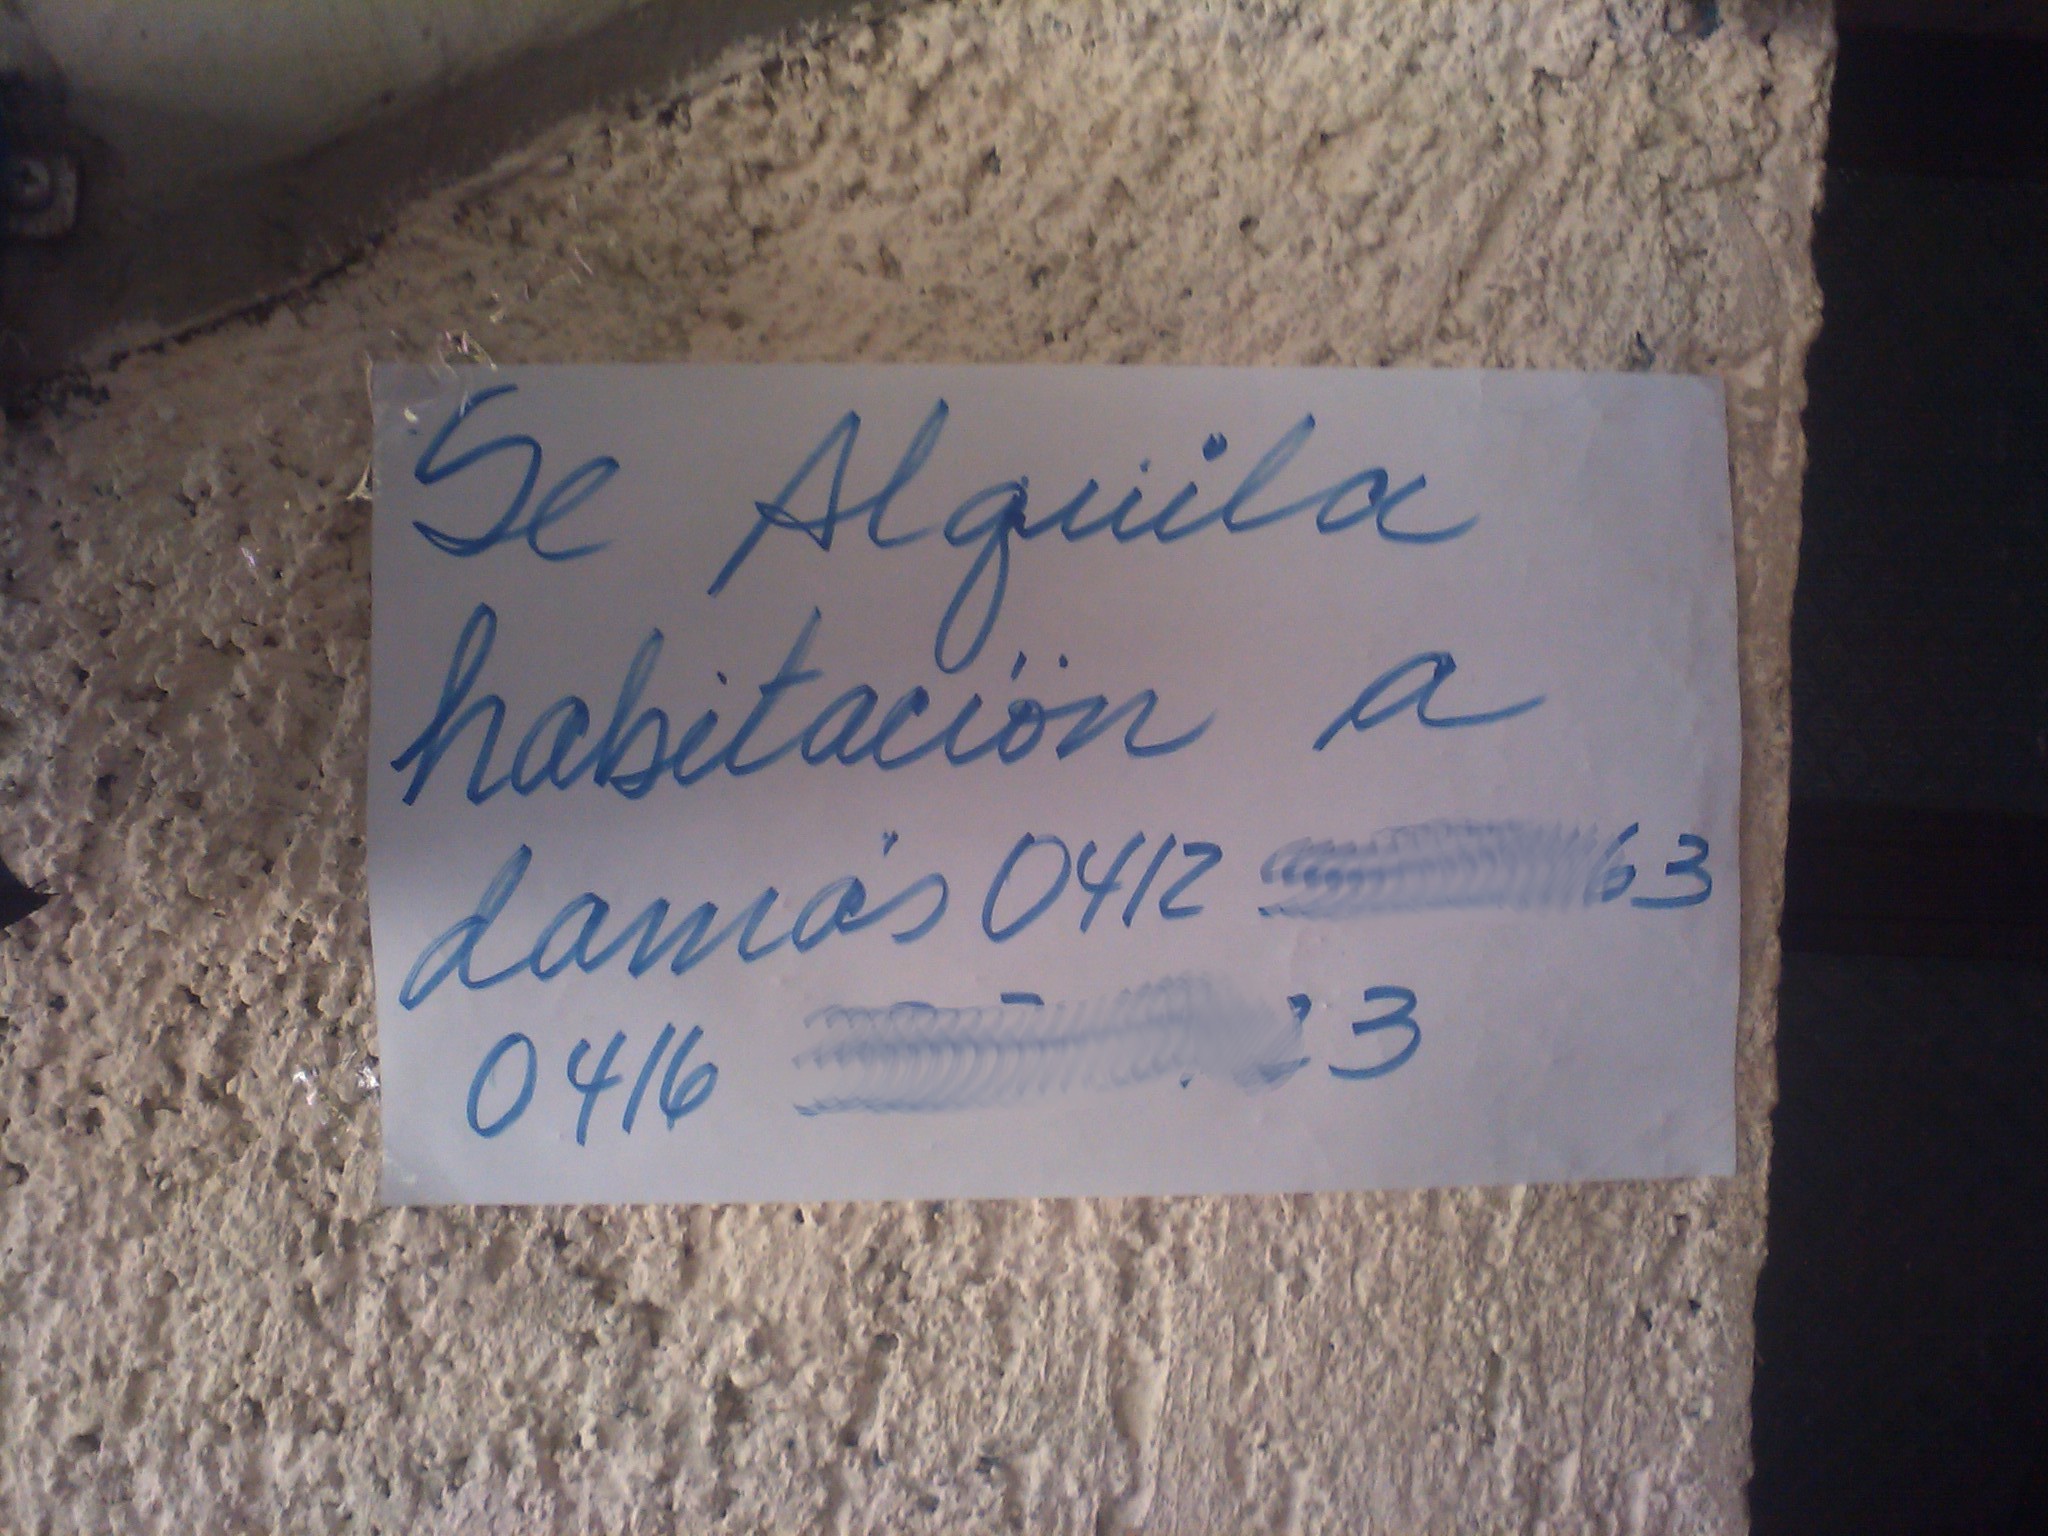 Se Alquila
habitación a
damás 0412 63
0416 3